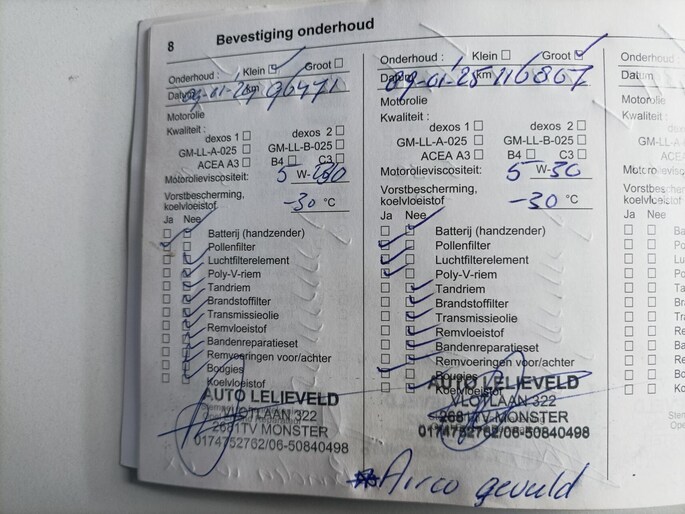 8 Bevestiging onderhoud
Onderhoud : Klein Groot
Datum 09-01-24 km 96471
Motorolie
Kwaliteit :
dexos 1 dexos 2
GM-LL-A-025 GM-LL-B-025
ACEA A3 B4 C3
Motorolieviscositeit: 5 W-30
Vorstbescherming,
koelvloeistof -30 °C
Ja Nee
Batterij (handzender)
Pollenfilter
Luchtfilterelement
Poly-V-riem
Tandriem
Brandstoffilter
Transmissieolie
Remvloeistof
Bandenreparatieset
Remvoeringen voor/achter
Bougies
Koelvloeistof
AUTO LELIEVELD
VLOTLAAN 322
2681TV MONSTER
0174752762/06-50840498
Onderhoud : Klein Groot
Datum 09-01-25 km 116867
Motorolie
Kwaliteit :
dexos 1 dexos 2
GM-LL-A-025 GM-LL-B-025
ACEA A3 B4 C3
Motorolieviscositeit: 5 W-30
Vorstbescherming,
koelvloeistof -30 °C
Ja Nee
Batterij (handzender)
Pollenfilter
Luchtfilterelement
Poly-V-riem
Tandriem
Brandstoffilter
Transmissieolie
Remvloeistof
Bandenreparatieset
Remvoeringen voor/achter
Bougies
Koelvloeistof
AUTO LELIEVELD
VLOTLAAN 322
2681TV MONSTER
0174752762/06-50840498
* Airco gevuld
Onderhoud :
Datum
Motorolie
Kwaliteit :
GM-LL-A
ACE
Vorstbescher
koelvloeisto
Ja Nee
Ba
Po
Lu
Po
Ta
Br
Tra
Re
Ba
Re
Bo
Ko